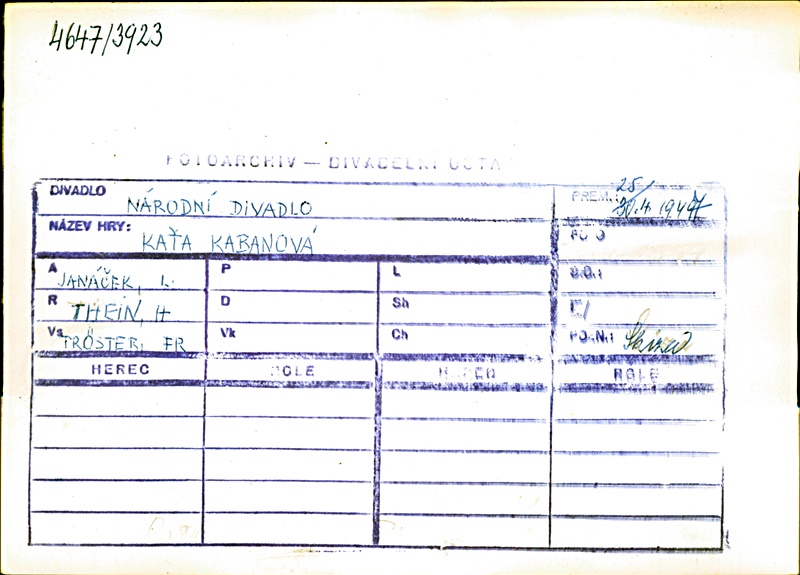 4647/3923
FOTOARCHIV — DIVADELNÍ ÚSTAV
DIVADLO NÁRODNÍ DIVADLO PREM.: 25/
NÁZEV HRY: KAŤA KABANOVÁ
A JANÁČEK, L. P L
R THEIN, H D Sh
Vs TRÖSTER, FR Vk Ch POZN.:
HEREC ROLE HEREC ROLE